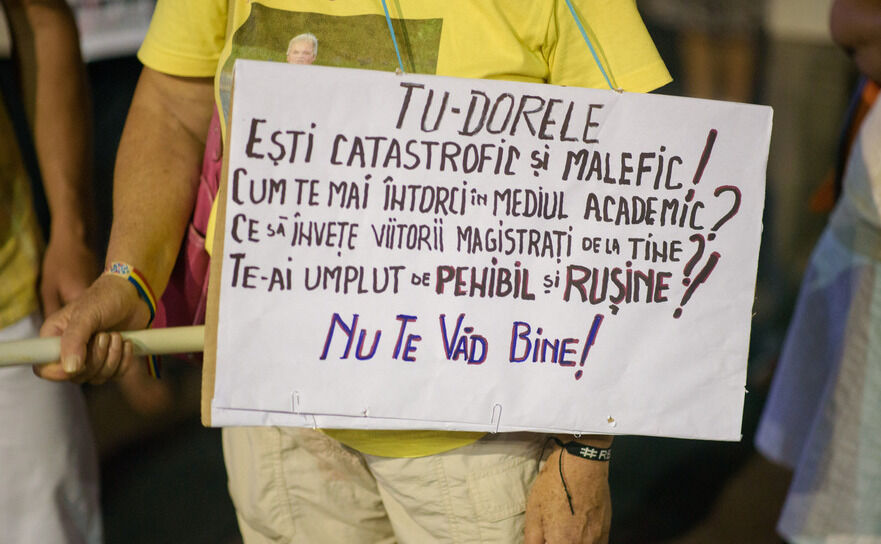 TU-DORELE
EȘTI CATASTROFIC ȘI MALEFIC!
CUM TE MAI ÎNTORCI ÎN MEDIUL ACADEMIC?
CE SĂ ÎNVEȚE VIITORII MAGISTRAȚI DE LA TINE?!
TE-AI UMPLUT DE PEHIBIL ȘI RUȘINE!
NU TE VĂD BINE!